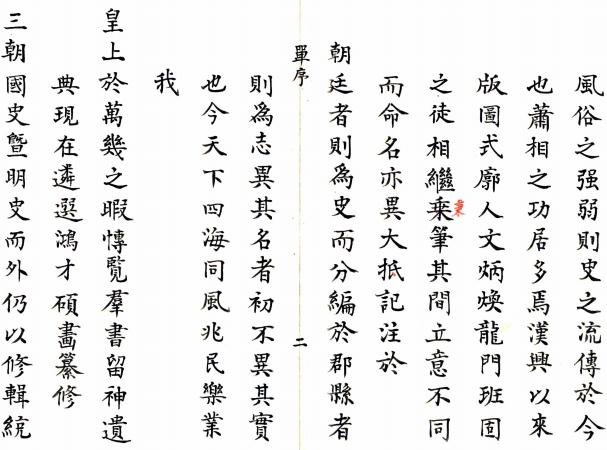 風俗之强弱則史之流傳於今
也蕭相之功居多焉漢興以來
版圖式廓人文炳煥龍門班固
之徒相繼乗筆其間立意不同
秉
而命名亦異大抵記注於
朝廷者則爲史而分編於郡縣者
單序
二
則爲志異其名者初不異其實
也今天下四海同風兆民樂業
我
皇上於萬幾之暇愽覽羣書留神遺
典現在遴選鴻才碩畫纂修
三朝國史曁明史而外仍以修輯統